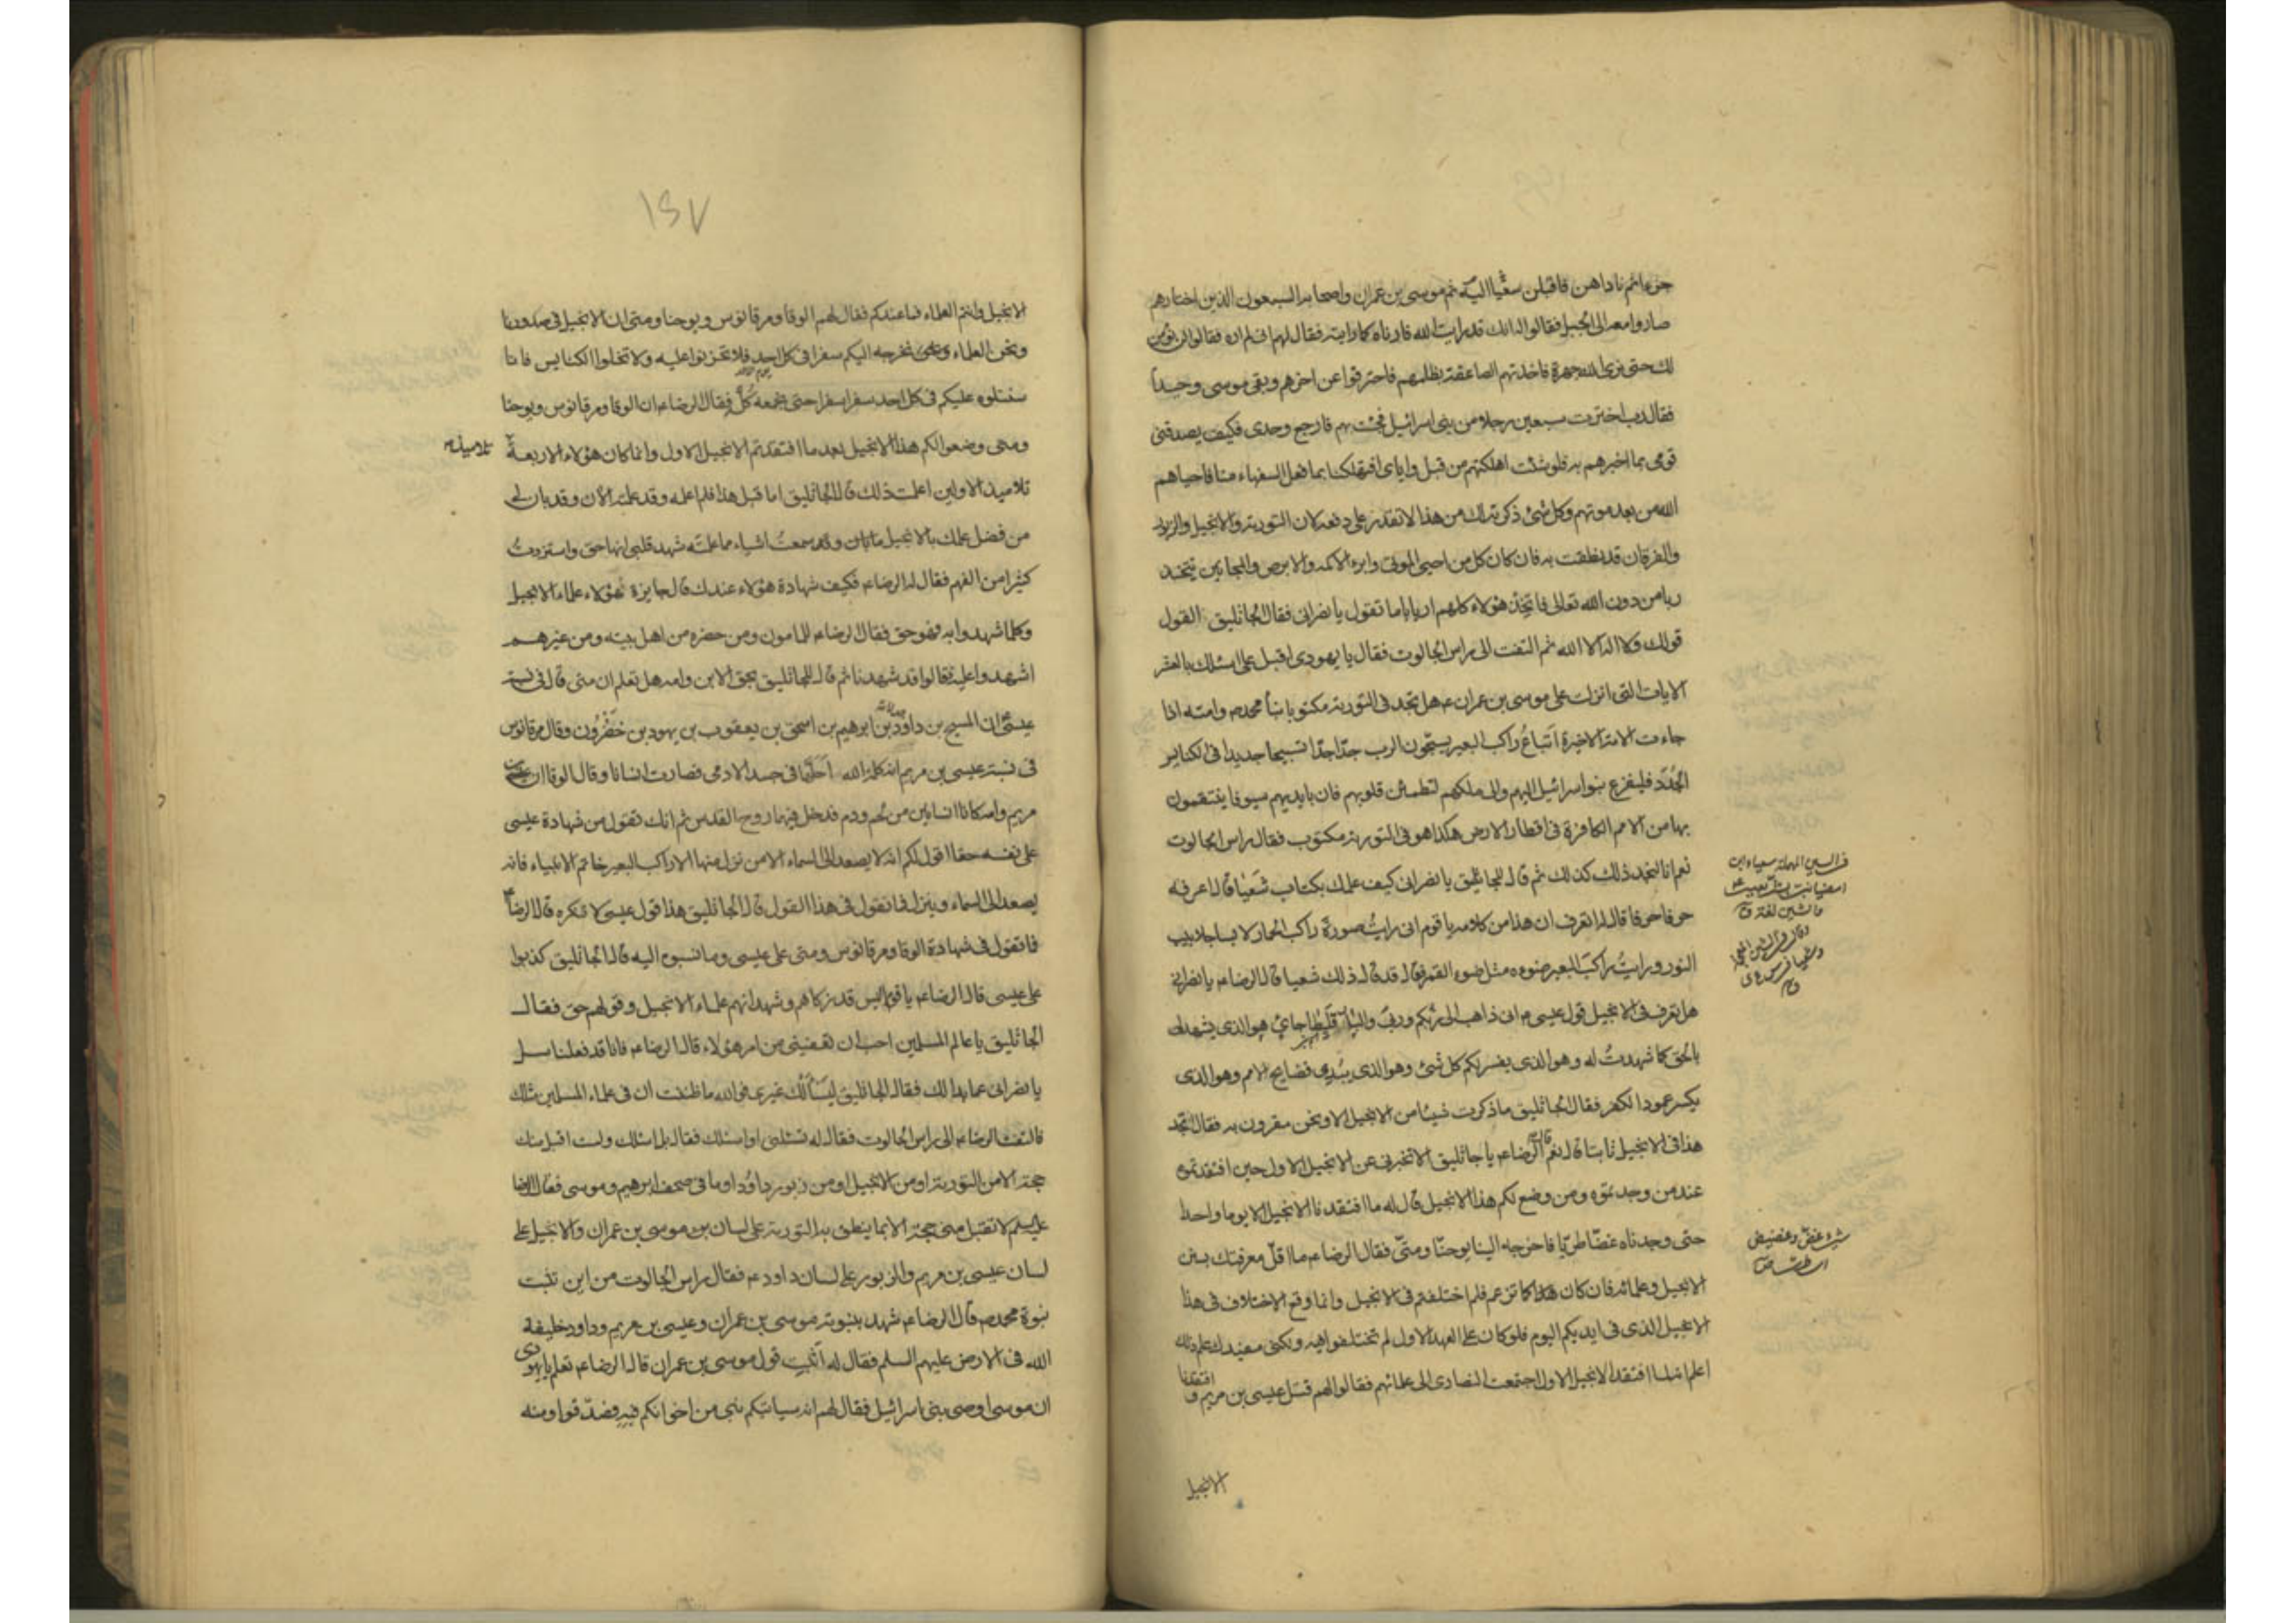 جزء اثم ناداهن فاقبلن سعيا اليه ثم موسى بن عمران واصحابه السبعون الذين اختارهم
صاروا معه الى الجبل فقالوا له انك قد رايت الله فارناه كما رايته فقال لهم انى لم اره فقالوا لن نؤمن
لك حتى نرى الله جهرة فاخذتهم الصاعقة بظلمهم فاحترقوا عن اخرهم وبقى موسى وحيداً
فقال رب اخترت سبعين رجلا من بنى اسرائيل فجئت بهم فارجع وحدى فكيف يصدقنى
قومى بما اخبرهم به فلو شئت اهلكتهم من قبل واياى افتهلكنا بما فعل السفهاء منا فاحياهم
الله من بعد موتهم وكل شئ ذكرته لك من هذا لا تقدر على دفعه لان التورية والانجيل والزبور
والفرقان قد نطقت به فان كان كل من احيى الموتى وابرء الاكمه والابرص والمجانين يتخذ
ربا من دون الله تعالى فاتخذ هؤلاء كلهم اربابا ما تقول يا نصرانى فقال الجاثليق القول
قولك ولا اله الا الله ثم التفت الى راس الجالوت فقال يا يهودى اقبل على اسئلك بالعشر
الايات التى انزلت على موسى بن عمران ع هل تجد فى التورية مكتوبا نبأ محمد ص وامته اذا
جاءت الامة الاخيرة اتباعُ راكب البعير يسبّحون الرب جدّا جدّا تسبيحا جديدا فى الكنايس
الجُدَد فليفزع بنو اسرائيل اليهم والى ملكهم لتطمئن قلوبهم فان بايديهم سيوفا ينتقمون
بها من الامم الكافرة فى اقطار الارض هكذا هو فى التورية مكتوب فقال راس الجالوت
نعم انا لنجد ذلك كذلك ثم قال للجاثليق يا نصرانى كيف علمك بكتاب شَعيا قال اعرفه
حرفا حرفا قال لهما اتعرفان هذا من كلامه يا قوم انى رايتُ صورة راكب الحمار لابسا جلابيب
النور ورايتُ راكب البعير ضوءه مثل ضوء القمر فقال قد قال ذلك شعيا قال الرضا ع يا نصرانى
هل تعرف فى الانجيل قول عيسى ع انى ذاهب الى ربكم وربى والبارقليطا جائ هو الذى يشهد لى
بالحق كما شهدتُ له وهو الذى يفسر لكم كل شئ وهو الذى يُبدى فضايح الامم وهو الذى
يكسر عمود الكفر فقال الجاثليق ما ذكرت شيئا من الانجيل الا ونحن مقرون به فقال اتجد
هذا فى الانجيل ثابتا قال نعم قال الرضا ع يا جاثليق الا تخبرنى عن الانجيل الاول حين افتقدتموه
عند من وجدتموه ومن وضع لكم هذا الانجيل قال له ما افتقدنا الانجيل الا يوما واحدا
حتى وجدناه غضّا طريّا فاخرجه الينا يوحنّا ومتّى فقال الرضا ع ما اقلّ معرفتك بسنن
الانجيل وعلمائه فان كان هذا كما تزعم فلم اختلفتم فى الانجيل وانما وقع الاختلاف فى هذا
الانجيل الذى فى ايديكم اليوم فلو كان على العهد الاول لم تختلفوا فيه ولكنى مفيدك علم ذلك
اعلم انه لما افتقد الانجيل الاول اجتمعت النصارى الى علمائهم فقالوا لهم قتل عيسى بن مريم و افتقدنا
شئ غض وغضيض
اى طرى
الانجيل
١٤٧
الانجيل وانتم العلماء فما عندكم فقال لهم الوقا ومرقانوس ويوحنا ومتى ان الانجيل فى صدورنا
ونحن العلماء ونحن نخرجه اليكم سفرا فى كل احد فلا تحزنوا عليه ولا تخلوا الكنايس فانا
سنتلوه عليكم فى كل احد سفرا سفرا حتى نجمعه كُلَّه فقال الرضا ع ان الوقا ومرقانوس ويوحنا
ومتى وضعوا لكم هذا الانجيل بعد ما افتقدتم الانجيل الاول وانما كان هؤلاء الاربعة
تلاميذ
تلاميذ الاولين اعلمت ذلك قال الجاثليق اما قبل هذا فلم اعلمه وقد علمته الآن وقد بان لى
من فضل علمك بالانجيل ما بان وقد سمعتُ اشياء مما علمته شهد قلبى انها حق واستزدتُ
كثيرا من الفهم فقال له الرضا ع فكيف شهادة هؤلاء عندك قال جايزة هؤلاء علماء الانجيل
وكلما شهدوا به فهو حق فقال الرضا ع للمامون ومن حضره من اهل بيته ومن غيرهم
اشهدوا عليه فقالوا قد شهدنا ثم قال للجاثليق بحق الابن وامه هل تعلم ان متى قال فى نسبة
عيسى ان المسيح بن داود بن ابرهيم بن اسحق بن يعقوب بن يهود بن خَضرُون وقال مرقانوس
فى نسبة عيسى بن مريم انه كلمة الله احلّها فى جسد الادمى فصارت انسانا وقال الوقا ان عيسى بن
مريم وامه كانا انسانين من لحم ودم فدخل فيهما روح القدس ثم انك تقول من شهادة عيسى
على نفسه حقا اقول لكم انه لا يصعد الى السماء الا من نزل منها الا راكب البعير خاتم الانبياء فانه
يصعد الى السماء وينزل فما تقول فى هذا القول قال الجاثليق هذا قول عيسى لا ننكره قال الرضا ع
فما تقول فى شهادة الوقا ومرقانوس ومتى على عيسى وما نسبوه اليه قال الجاثليق كذبوا
على عيسى قال الرضا ع يا قوم اليس قد زكاهم وشهد انهم علماء الانجيل وقولهم حق فقال
الجاثليق يا عالم المسلمين احب ان تعفينى من امر هؤلاء قال الرضا ع فانا قد فعلنا سل
يا نصرانى عما بدا لك فقال الجاثليق ليَسألك غيرى فوالله ما ظننت ان فى علماء المسلمين مثلك
فالتفت الرضا ع الى راس الجالوت فقال له تسئلنى او اسئلك فقال بل اسئلك ولست اقبل منك
حجة الا من التورية او من الانجيل او من زبور داوُد او ما فى صحف ابرهيم وموسى فقال الرضا
عليه السلم لا تقبل منى حجة الا بما ينطق به التورية على لسان بن موسى بن عمران والانجيل على
لسان عيسى بن مريم والزبور على لسان داود ع فقال راس الجالوت من اين تثبت
نبوة محمد ص قال الرضا ع شهد بنبوته موسى بن عمران وعيسى بن مريم وداود خليفة
الله فى الارض عليهم السلم فقال له اثبت قول موسى بن عمران قال الرضا ع تعلم يا يهودى
ان موسى اوصى بنى اسرائيل فقال لهم انه سياتيكم نبى من اخوانكم فبه فصدّقوا ومنه